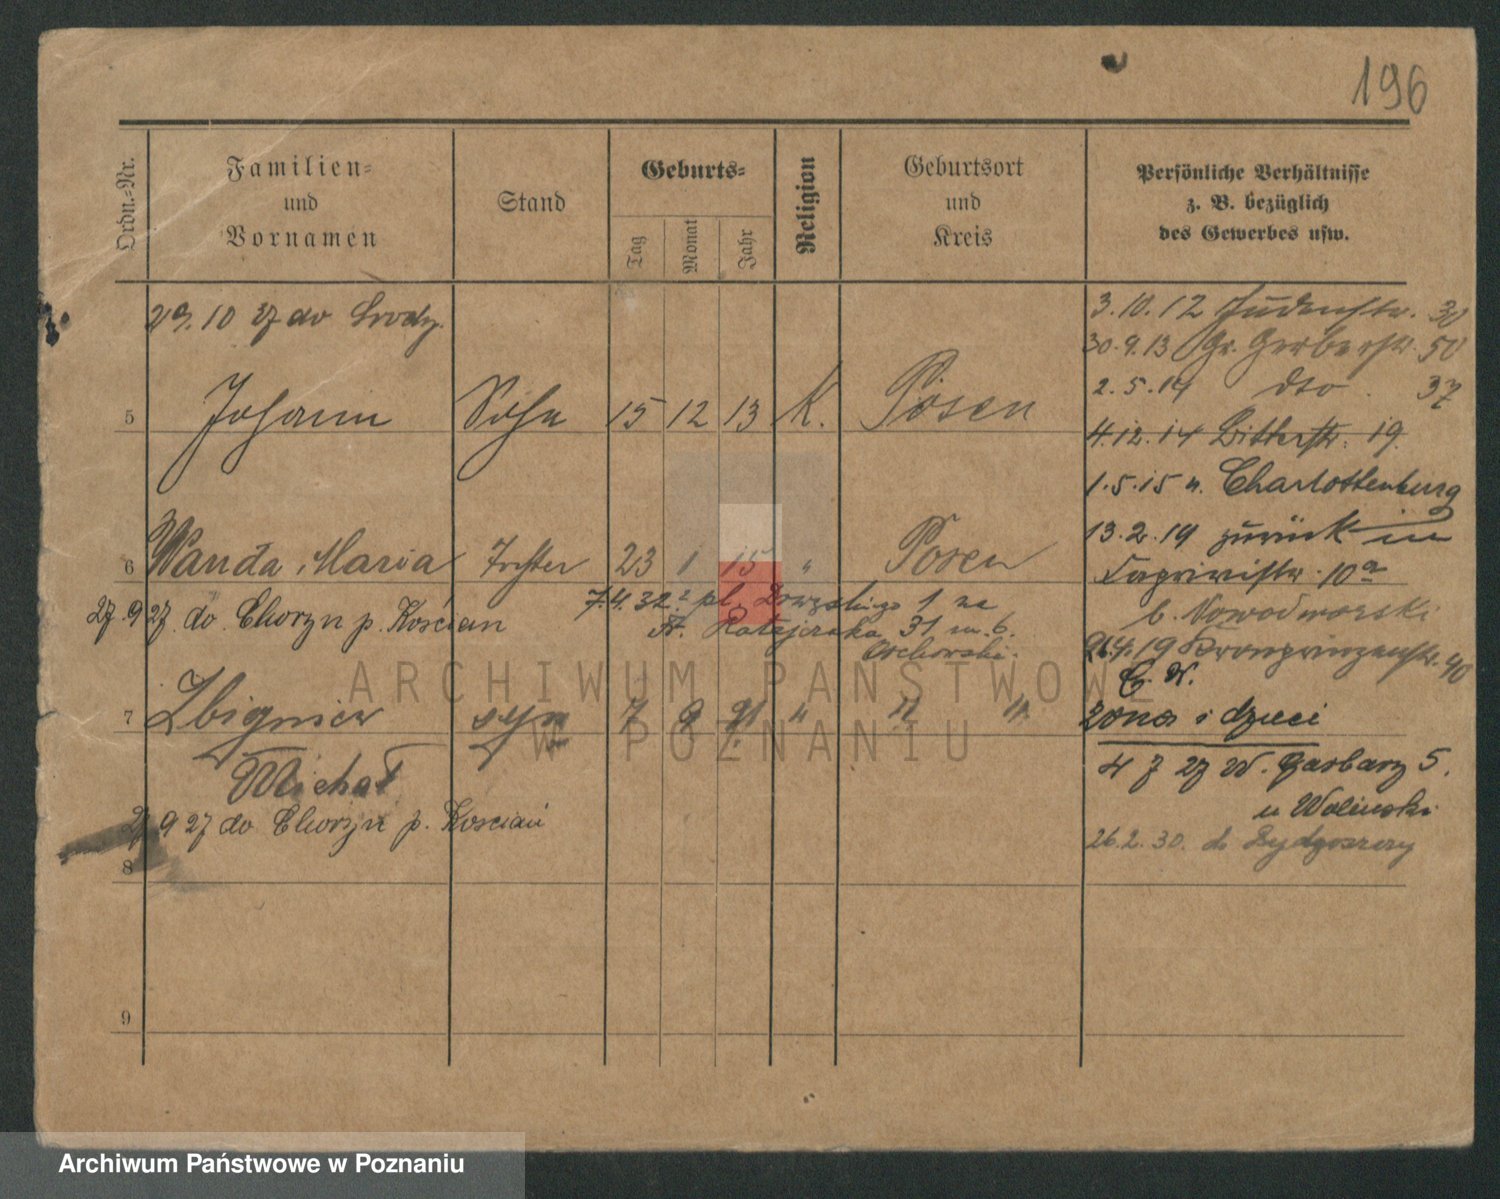 196
Ordn.-Nr.
Familien-
und
Vornamen
Stand
Geburts-
Tag
Monat
Jahr
Religion
Geburtsort
und
Kreis
Persönliche Verhältnisse
z. B. bezüglich
des Gewerbes usw.
29. 10 27 do Środy.
5 Johann Sohn 15 12 13 K. Posen
6 Wanda Maria Tochter 23 1 15 " Posen
27. 9 27. do Chorzyn p. Kościan
7. 4. 32 pl. 1 na
Ratajczaka 31 m. 6.
7 Zbigniew syn 7 9 21 " " "
Michał
27 9 27 do Chorzyn p. Kościan
8
9
3. 10. 12 Judenstr. 30
30. 9. 13 Gr. Gerberstr. 50
2. 5. 14 dto. 37
4. 12. 14 Bitterstr. 19.
1. 5. 15 n. Charlottenburg
13. 2. 19 zurück in
Caprivistr. 10a
b. Nowodworski
19 Kronprinzenstr. 40
żona i dzieci
4 7 27 W. Garbary 5.
u Wolinski
26. 2. 30. do Bydgoszczy
ARCHIWUM PAŃSTWOWE
W POZNANIU
Archiwum Państwowe w Poznaniu